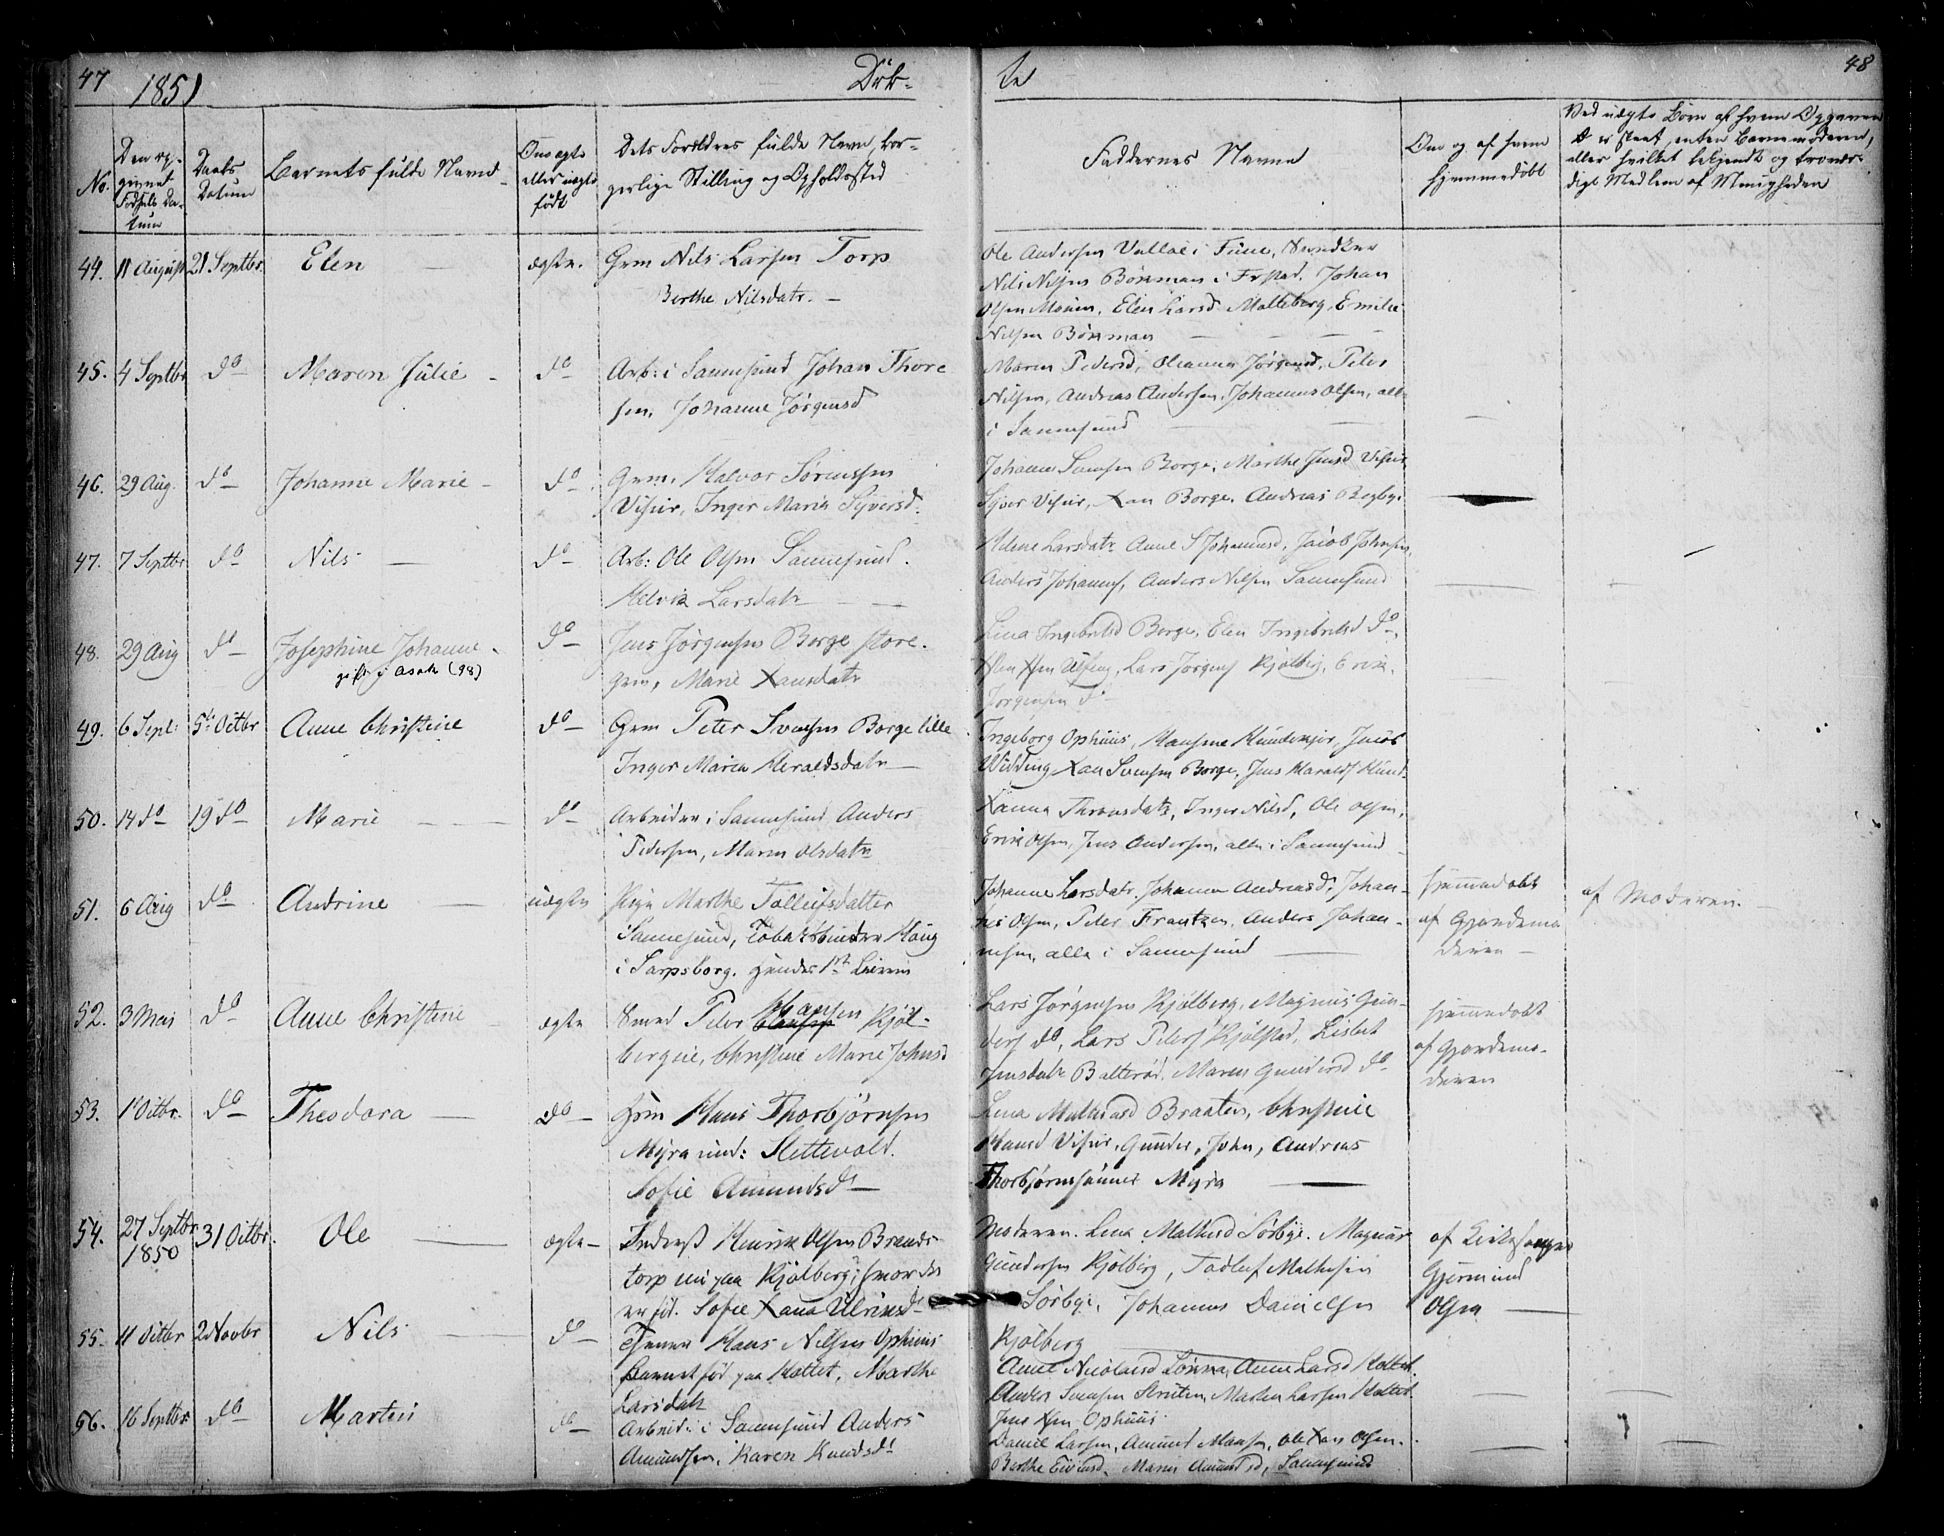 47 1851 Døb-
te 48
No.
Den op-
givne
Fødsels Da-
tum
Daabs
Datum
Barnets fulde Navn
Om ægte
eller uægte
født
Dets Forældres fulde Navn, bor-
gerlige Stilling og Opholdssted
Faddernes Navne
Om og af hvem
hjemmedøbt
Ved uægte Børn af hvem Opgaven
er skeet, enten Barnemoderen,
eller hvilket bekjendt og trovær-
digt Medlem af Menigheden
44. 11 August 21 Septbr. Elen — ægte. Grm Nils Larsen Torp
Berthe Nilsdatr. —
Ole Andersen Valløe i Fune,
Nils Nilsen Börsman i Frstad. Johan
Olsen Moum, Elen Larsd Malteberg, Emilie
Nilsen Börsman —
45. 4 Septbr do — Maren Julie — do — Arb: i Sannesund Johan Thore
sen, Johanne Jørgensd
Maren Pedersd, Oleanna Jørgensd, Peter
Nilsen, Andreas Andersen, Johannes Olsen, alle
i Sannesund —
46. 29 Aug. do — Johanne Marie — do — Grm. Halvor Sørenssen
Visur, Inger Marie Syversd.
Johanne Svensen Borge, Marthe Jensd Visur
Syver Visur, Xan Borge, Andreas Begby.
47. 7 Septbr do — Nils — do — Arb: Ole Olsen Sannesund.
Helvik Larsdatr —
Helene Larsdatr Anne S Johannsd, Jacob Johnsen,
Anders Johanns, Anders Nilsen Sannesund
48. 29 Aug do — Josephine Johanne. do — Jens Jørgensen Borge store.
gift i Asak (98)
Grm, Marie Xansdatr
Lena Ingebretsd Borge, Elen Ingebretsd do,
Lars Jørgens Kjølberg, Erik
Jørgensen do
49. 6 Sept: 5te Octbr Anne Christine do — Grm Peter Svensen Borge lille
Inger Maria Heraldsdatr —
Ingeborg Ophuus, Hansene Hunderjor, Jacob
Widding Xan Svensen Borge, Jens Haralds Hund.
50. 14 do 19 do Marie — do — Arbeider i Sannesund Anders
Pedersen, Maren Olsdatr
Xanna Thronsdatr, Inger Nilsd, Ole Olsen,
Erik Olsen, Jens Andersen, alle i Sannesund
51. 6 Aug do — Andrine — uægte Pige Marthe Tollefsdatter
Sannesund, Tobaksbinder Haug
i Sarpsborg. Hendes 1st Leierm
Johanne Larsdatr, Johanna Andreasd, Johan-
nes Olsen, Peter Frantzen, Anders Johan-
nesen, alle i Sannesund —
hjemmedøbt
af Gjordemo
deren —
af Moderen. —
52. 3 Mai do — Anne Christine — ægte Smed Peter Hansen Kjøl-
bergeie, Christine Marie Johnsd
Lars Jørgensen Kjølberg, Magnus Gun-
ders do, Lars Peters Kjølstad, Lisbet
Jensdatr Balterød, Maren Gundersd do
hjemmedøbt
af Gjordemo-
deren
53. 1 Octbr. do — Theodora — do — Hsm Hans Thorbjørnsen
Myra und: Slettevold.
Sofie Amundsd —
Lena Mathiasd Braaten, Christine
Hansd Visur, Gunder, John, Andreas
Thorbjørnssønner Myra —
54. 27 Septbr
1850 31 Octbr. Ole — ægte — Inderst Henrik Olsen Brands-
torp nu paa Kjølberg, hvor der
er fød. Sofie Xana Ulriksd
Moderen. Lena Mathisd Sørbye. Magnus
Gundersen Kjølberg, Tollef Mathisen
Sørbye, Johannes Danielsen
Kjølberg
af Kirkesanger
Gjermund
Olsen —
55. 11 Octbr 2 Novbr Nils — do — Tjener Hans Nilsen Ophuus
Barnet fød paa Hattet, Marthe
Larsdatr
Anne Nicolaisd Lønna, Anne Larsd Hattet.
Anders Svensen Struten, Martin Larsen Hattet.
Jens Hsen Ophuus.
56. 16 Septbr do Martin do — Arbeid: i Sannesund Anders
Amundsen, Karen Knudsd
Daniel Larsen, Amund Hansen, Ole Xan Olsen.
Berthe Eviensd, Maren Amundsd, Sannesund